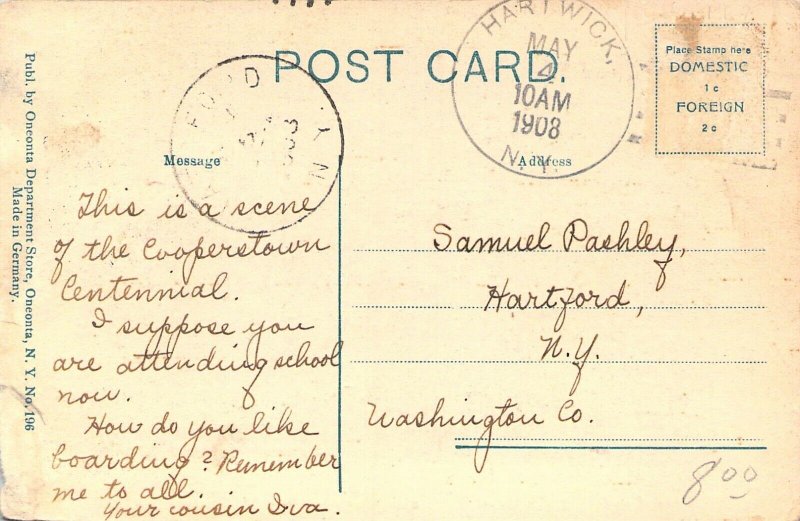 POST CARD.
HARTWICK,
MAY
4
10AM
1908
N.Y.
FORD
N Y
Place Stamp here
DOMESTIC
1c
FOREIGN
2c
Message
Address
This is a scene
of the Cooperstown
Centennial.
I suppose you
are attending school
now.
How do you like
boarding? Remember
me to all.
Your cousin Iva.
Samuel Pashley,
Hartford,
N.Y.
Washington Co.
8 00
Publ. by Oneonta Department Store, Oneonta, N. Y. No. 196
Made in Germany.